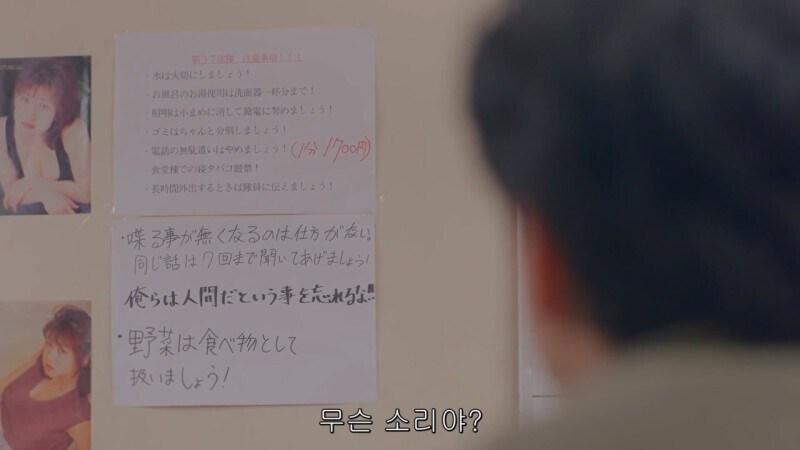 注意事項!!!
・水は大切にしましょう!
・お風呂のお湯使用は洗面器一杯分まで!
・照明は小まめに消して節電に努めましょう!
・ゴミはちゃんと分別しましょう!
・電話の無駄遣いはやめましょう!(1分1700円)
・食堂棟での寝タバコ厳禁!
・長時間外出するときは隊員に伝えましょう!
・喋る事が無くなるのは仕方がない。
同じ話は7回まで聞いてあげましょう!
俺らは人間だという事を忘れるな!!
・野菜は食べ物として
扱いましょう!
무슨 소리야?